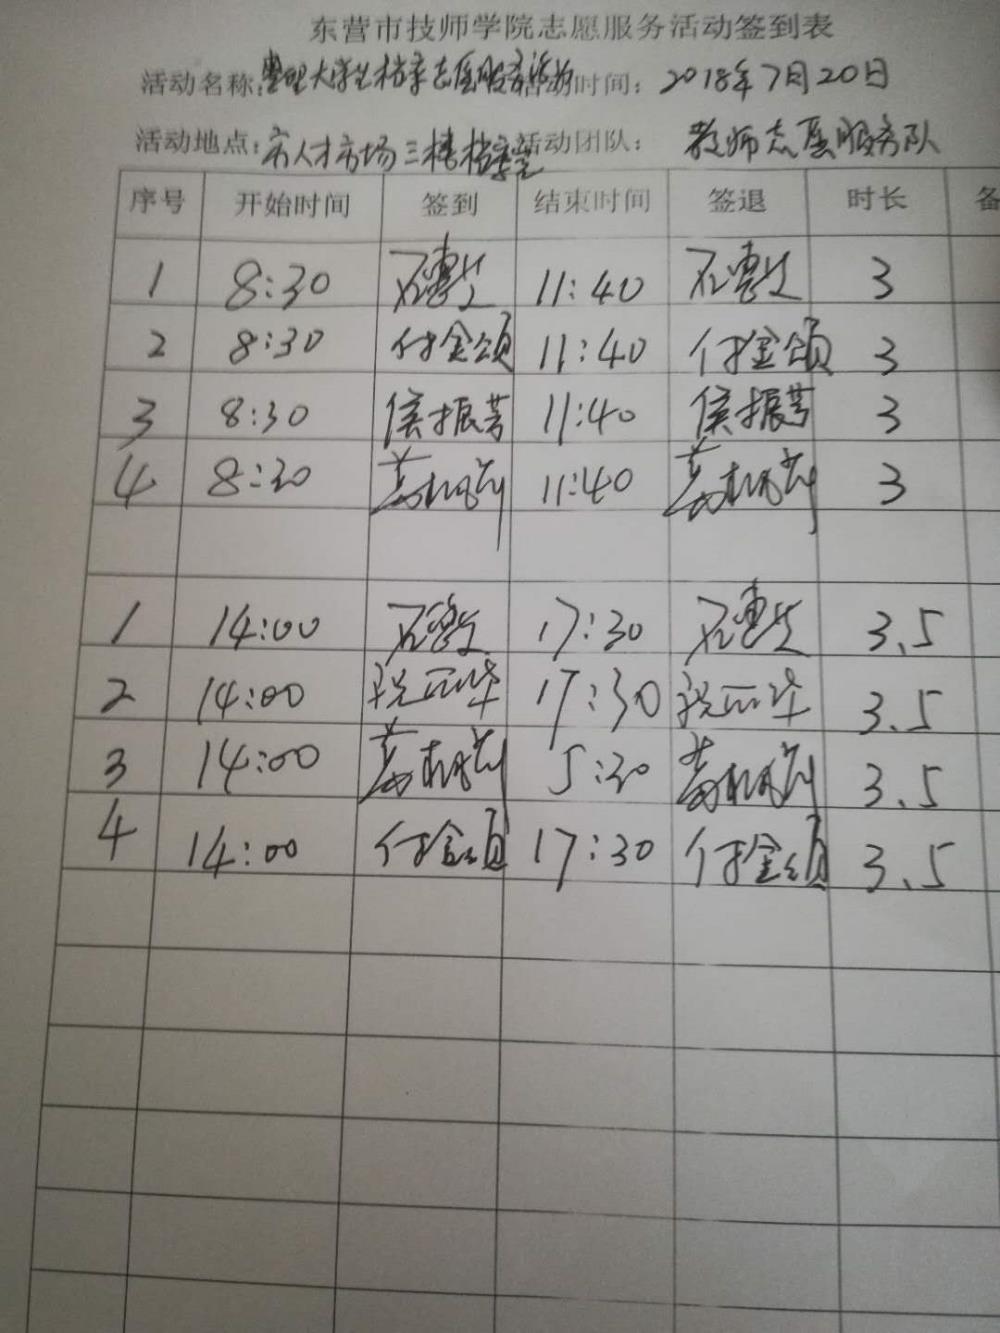 东营市技师学院志愿服务活动签到表
活动名称:整理大学生档案志愿服务活动 活动时间: 2018年7月20日
活动地点:市人才市场三楼档案室 活动团队: 教师志愿服务队
序号 开始时间 签到 结束时间 签退 时长 备
1 8:30 11:40 3
2 8:30 付金颂 11:40 付金颂 3
3 8:30 侯振芳 11:40 侯振芳 3
4 8:30 11:40 3
1 14:00 17:30 3.5
2 14:00 17:30 3.5
3 14:00 5:30 3.5
4 14:00 付金颂 17:30 付金颂 3.5